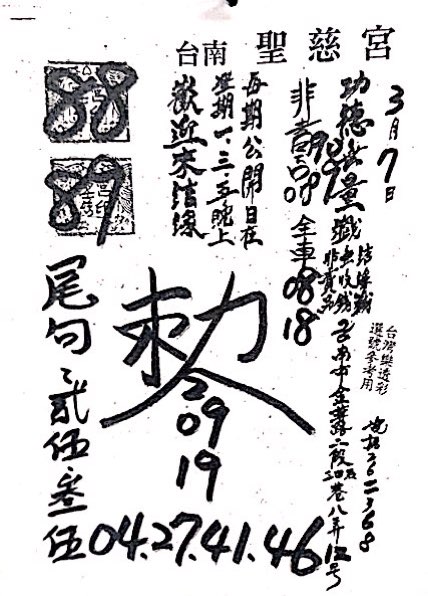 台南 聖慈宮
3月7日
功德無量
非賣品
全車08
18
結緣戳
無收錢
非賣品
台灣樂透彩
選號參考用
電話262368
台南市金華路二段
巷八弄12号
每期公開日在
星期一.三.五晚上
歡迎來結緣
88
89
勅令
09
19
尾句
貳伍叁伍
04.27.41.46